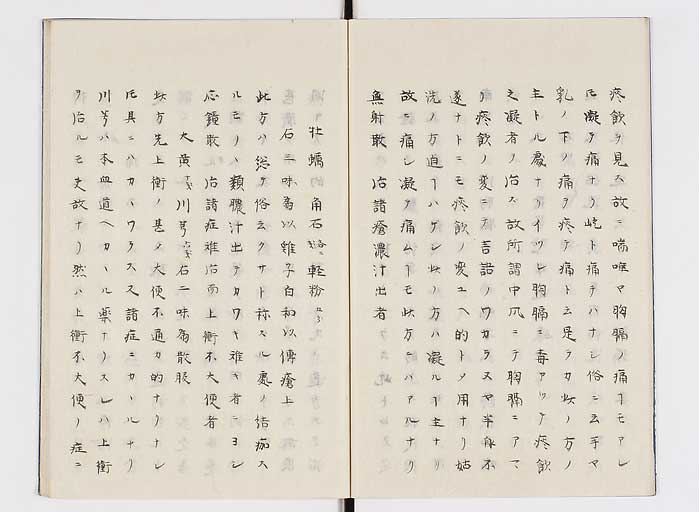 痰飲ヲ見ス故ニ喘咳マ胸膈ノ痛ーモアレ
𪜈凝テ痛ナリ屹ト痛テハナシ俗ニ云手マ
乳ノ下ノ痛ヲ痰テ痛ト云是ヲカ此ノ方ノ
主トル處ナリイツレ胸膈ニ毒アツテ痰飲
之凝者ノ治ス故所謂中風ニテ胸膈ニアマ
リ痰飲ノ変ニテ言語ノワカラスマ半身不
遂ナトニモ痰飲ノ変ユヘ的トメ用ナリ姑
洗ノ方迠ーハゲシ此ノ方ハ凝ルー主ナリ
故ニ痛シ凝テ痛ムーモ此方ニハアルナリ
無射散 治諸瘡濃汁出者
牡蠣 角石 軽粉
右三味為以雞子白和以傳瘡上
此方ハ総テ俗ニクサト称スル處ノ結痂ス
ルモノハ類膿汁出テカワキ雅キ者ニヨシ
応鐘散 治諸症難治而上衝不大便者
大黄 川芎 右二味為散服
此方先上衝ノ甚メ大便不通カ的ナリナレ
𪜈具ニハカハワラスス諸症ニカールナリ
川芎ハ本血道ヘカール薬ナリスレハ上衝
ヲ治ルモ丈故ナリ然ハ上衝不大便ノ症ニ